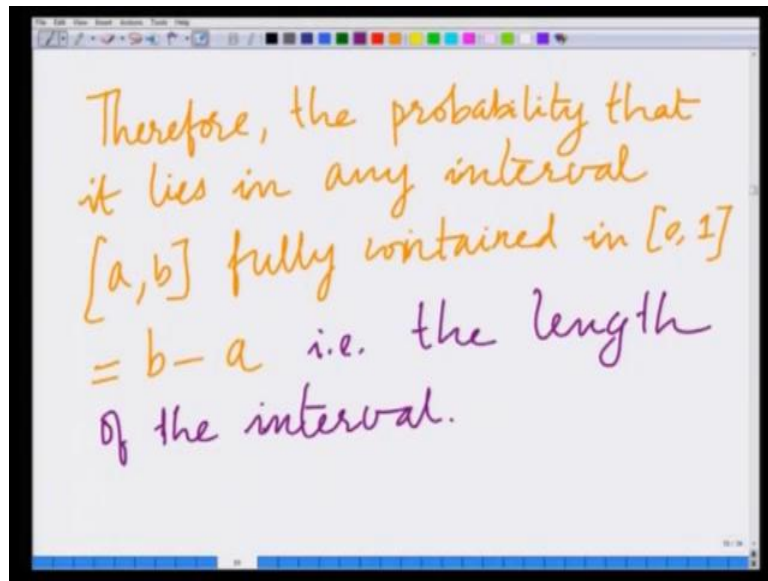 File Edit View Insert Actions Tools Help
B I
Therefore, the probability that
it lies in any interval
[a, b] fully contained in [0, 1]
= b - a i.e. the length
of the interval.